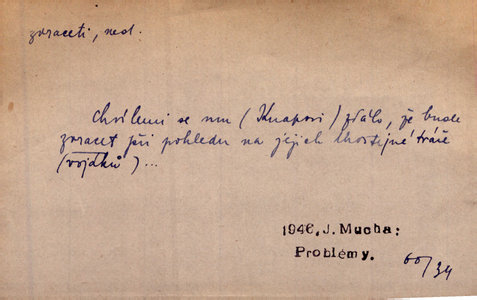 zvraceti, ned.
Chvílemi se mu (Knapovi) zdálo, že bude
zvracet při pohledu na jejich lhostejné tváře
(vojáků)...
1946, J. Mucha:
Problémy.
60/34